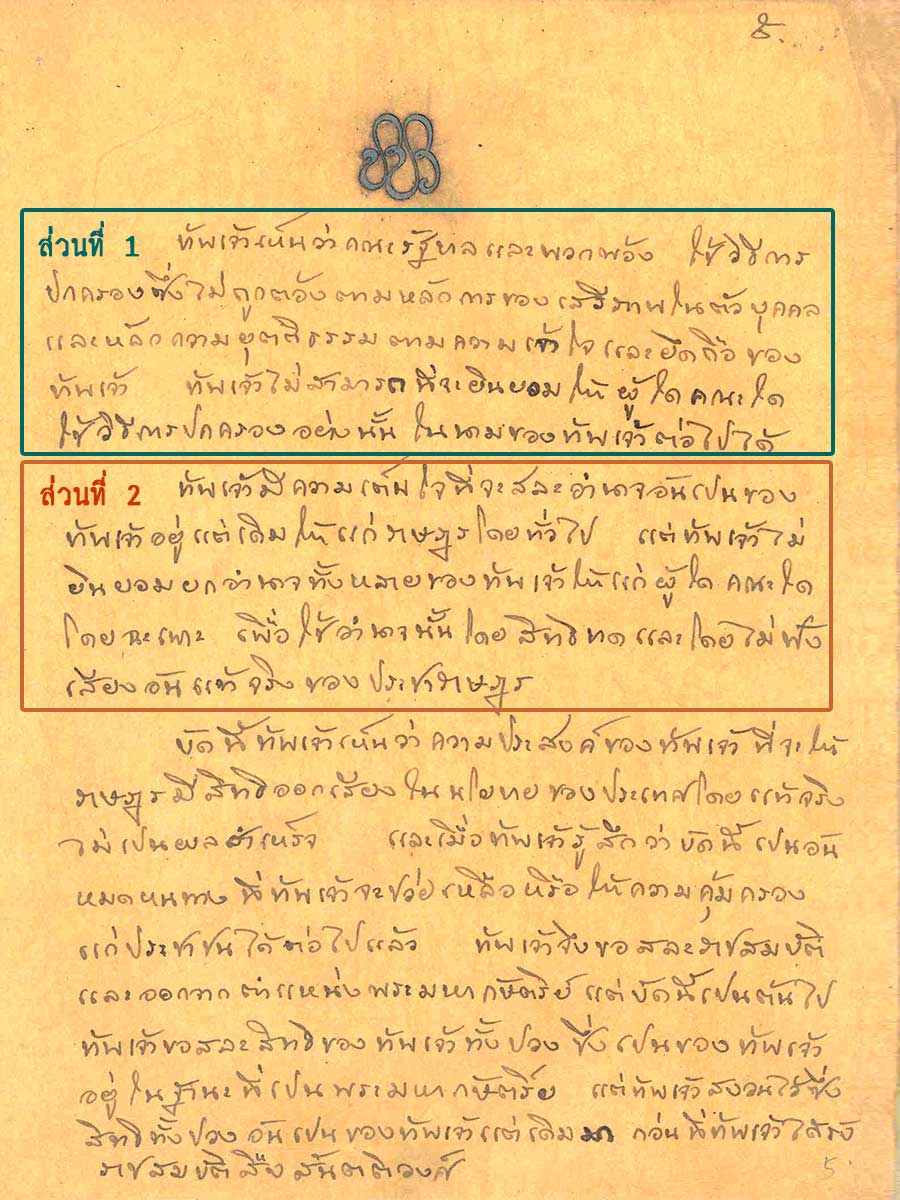 ๕.
ส่วนที่ 1 ข้าพเจ้าเห็นว่าคณะรัฐบาลและพวกพ้อง ใช้วิธีการ
ปกครองซึ่งไม่ถูกต้องตามหลักการของเสรีภาพในตัวบุคคล
และหลักความยุตติธรรมตามความเข้าใจและยึดถือของ
ข้าพเจ้า ข้าพเจ้าไม่สามารถที่จะยินยอมให้ผู้ใด คณะใด
ใช้วิธีการปกครองอย่างนั้น ในนามของข้าพเจ้าต่อไปได้
ส่วนที่ 2 ข้าพเจ้ามีความเต็มใจที่จะสละอำนาจอันเปนของ
ข้าพเจ้าอยู่แต่เดิมให้แก่ราษฎรโดยทั่วไป แต่ข้าพเจ้าไม่
ยินยอมยกอำนาจทั้งหลายของข้าพเจ้าให้แก่ผู้ใด คณะใด
โดยฉะเพาะ เพื่อใช้อำนาจนั้นโดยสิทธิขาด และโดยไม่ฟัง
เสียงอันแท้จริงของประชาราษฎร
บัดนี้ข้าพเจ้าเห็นว่าความประสงค์ของข้าพเจ้าที่จะให้
ราษฎรมีสิทธิออกเสียงในนโยบายของประเทศโดยแท้จริง
ไม่เปนผลสำเหร็จ และเมื่อข้าพเจ้ารู้สึกว่าบัดนี้เปนอัน
หมดหนทางที่ข้าพเจ้าจะช่วยเหลือหรือให้ความคุ้มครอง
แก่ประชาชนได้ต่อไปแล้ว ข้าพเจ้าจึงขอสละราชสมบัติ
และออกจากตำแหน่งพระมหากษัตริย์ แต่บัดนี้เปนต้นไป
ข้าพเจ้าขอสละสิทธิของข้าพเจ้าทั้งปวง ซึ่งเปนของข้าพเจ้า
อยู่ในฐานะที่เปนพระมหากษัตริย์ แต่ข้าพเจ้าสงวนไว้ซึ่ง
สิทธิทั้งปวงอันเปนของข้าพเจ้าแต่เดิมมา ก่อนที่ข้าพเจ้าได้รับ
ราชสมบัติสืบสันตติวงศ์